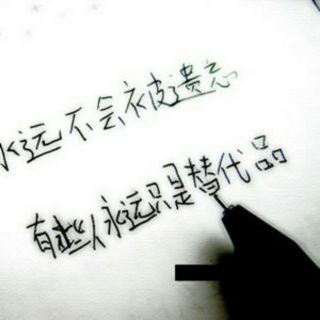 永远不会被遗忘
有些人永远只是替代品